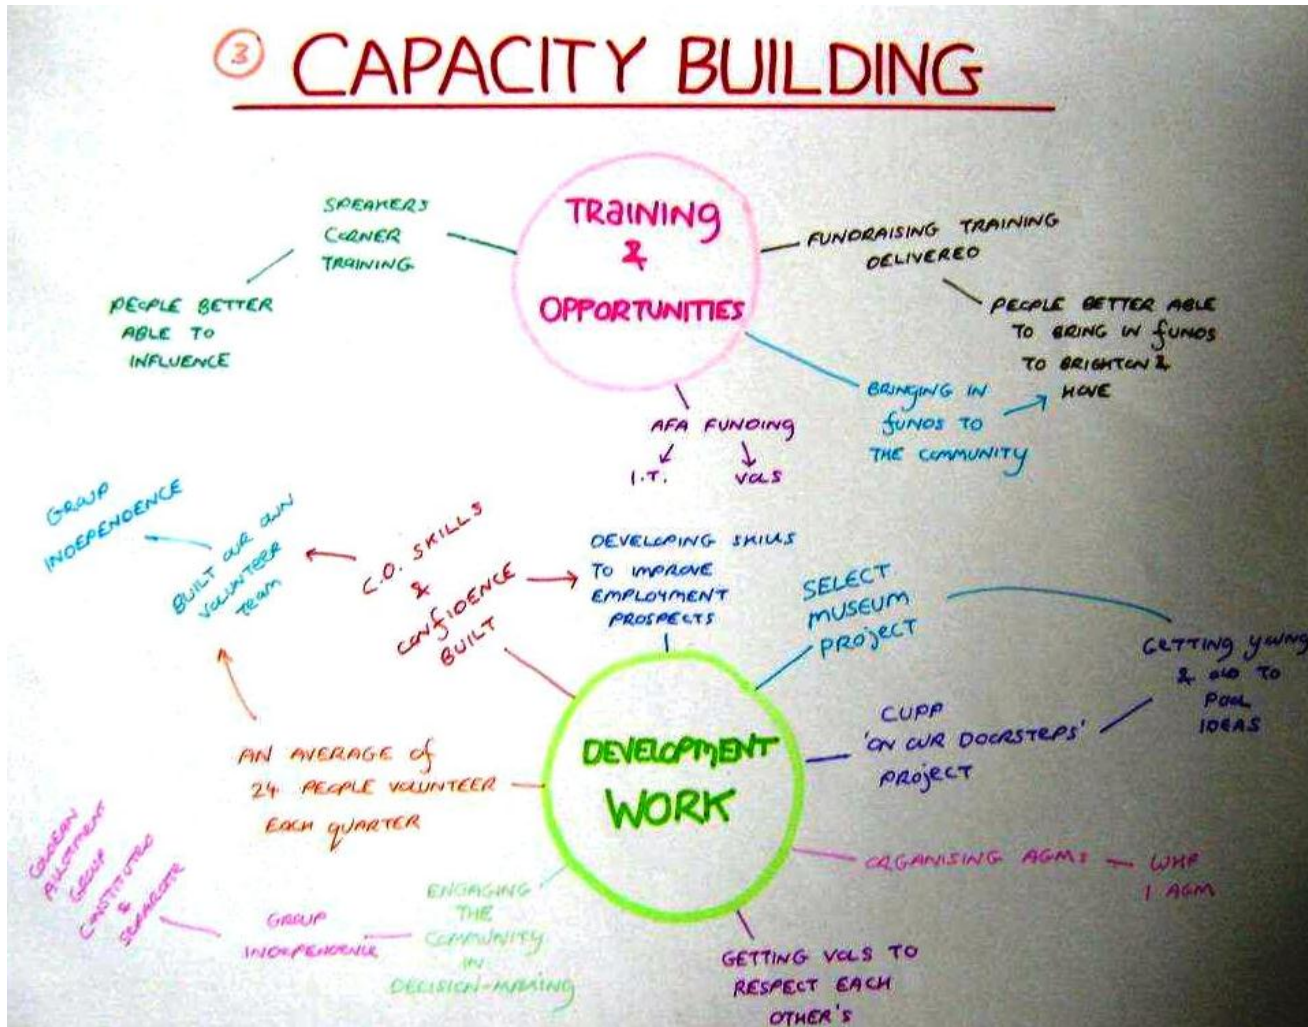 3 CAPACITY BUILDING
TRaINing
&
OPPORTUNITIES
SPEAKERS
CORNER
TRAINING
PEOPLE BETTER
ABLE TO
INFLUENCE
FUNDRAISING TRAINING
DELIVERED
PEOPLE BETTER ABLE
TO BRING IN fUNDS
TO BRIGHTON &
HOVE
BRINGING IN
fUNDS TO
THE COMMUNITY
AFA FUNDING
I.T. VOLS
GROUP
INDEPENDENCE
BUILT OUR OWN
VOLUNTEER
TEAM
C.O. SKILLS
&
CONfIDENCE
BUILT
DEVELOPING SKILLS
TO IMPROVE
EMPLOYMENT
PROSPECTS
SELECT
MUSEUM
PROjECT
GETTING YOUNG
& OLD TO
POOL
IDEAS
CUPP
'ON OUR DOORSTEPS'
PROjECT
DEVELOPMENT
WORK
AN AVERAGE Of
24 PEOPLE VOLUNTEER
EACH QUARTER
ORGANISING AGMs WHP
1 AGM
ENGAGING
THE
COMMUNITY
IN
DECISION-MAKING
GROUP
INDEPENDENCE
COLDEAN
ALLOTMENT
GROUP
CONSTITUTED
&
SEPARATE
GETTING VOLS TO
RESPECT EACH
OTHER'S